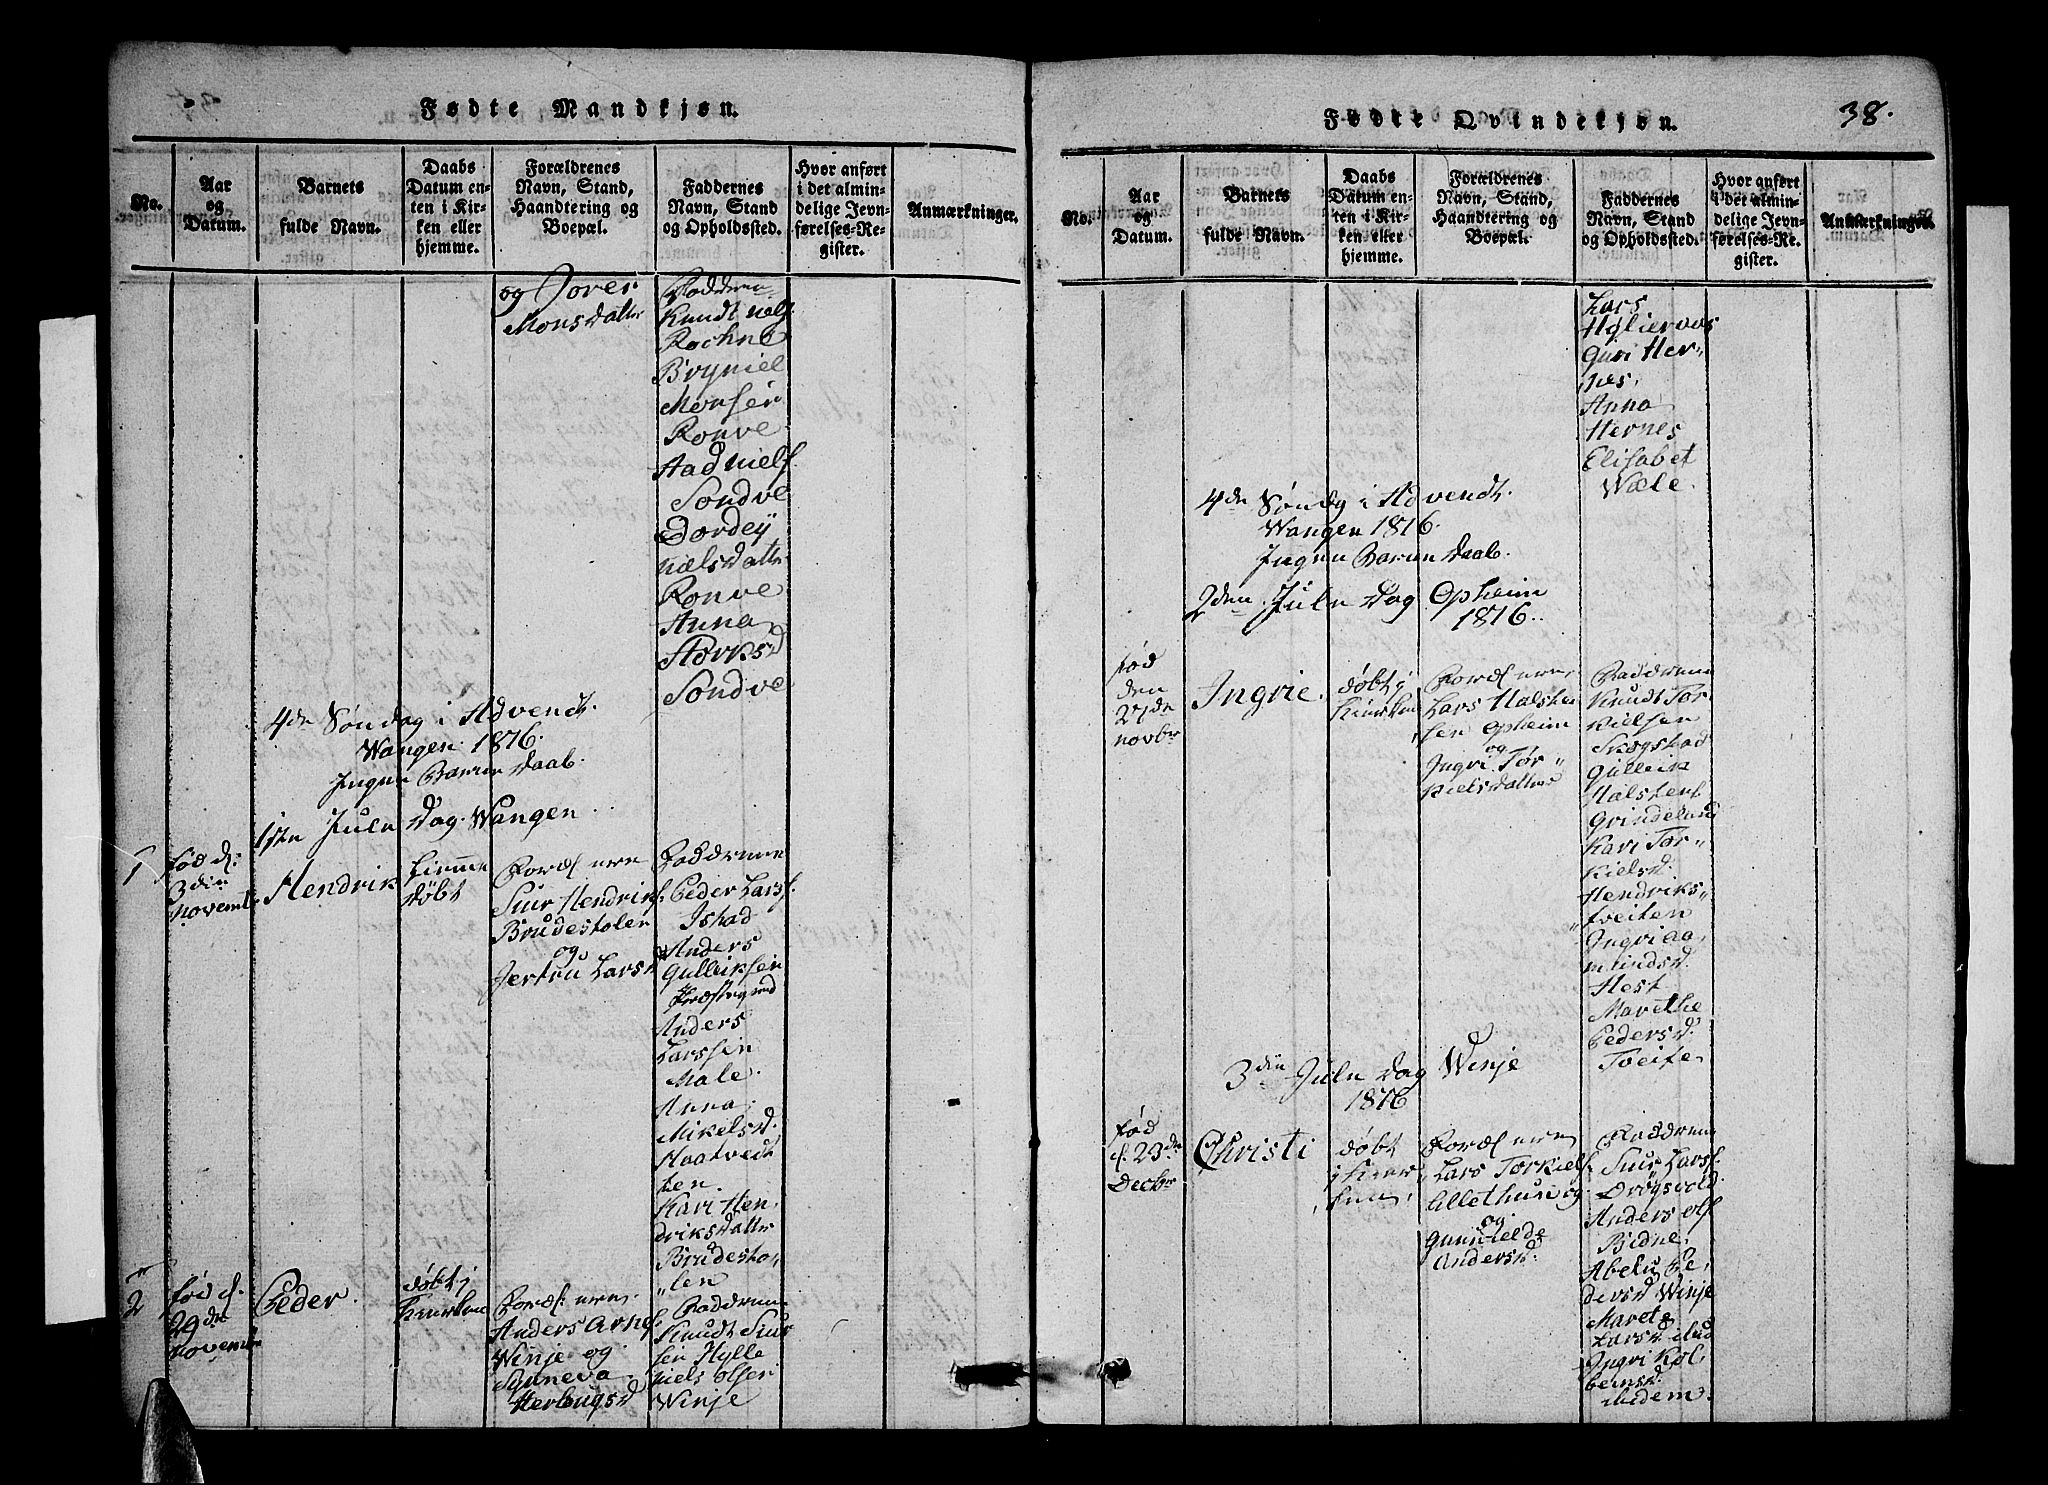 Fødte Mandkjøn.
No.
Aar
og
Datum.
Barnets
fulde Navn.
Daabs
Datum en-
ten i Kir-
ken eller
hjemme.
Forældrenes
Navn, Stand,
Haandtering og
Boepæl.
Faddernes
Navn, Stand
og Opholdssted.
Hvor anført
i det almin-
delige Jevn-
førelses-Re-
gister.
Anmærkninger.
og Jorer
Monsdattr
Faddren
Knudt
Rochne
Bryniel
Monsen
Ronve
Aad Nielf.
Sondve
Dordey
Nielsdattr
Ronve
Anna
Storksd
Sondve
4de Søndag i Advendt.
Wangen 1816.
Ingen Baren Daab.
1ste Jule Dag Wangen
1
fød d:
3die
Novemb.
Hendrik
hiemme
døbt
Foræl:erne
Siur Hendriks.
Brudestolen
og
Jertru Larsd
Faddrenne
Peder Larsf.
Istad
Anders
Gulleiksen
Præstegrund
Anders
Larssen
Male.
Anna
Mikelsd.
Haatvedt
ten.
Kari Hen,
driksdattr
Brudesto,
,,len
2
fød d.
29de
Novemb
Peder
døbt i
Kiærken
Foræl:erne.
Anders Arnes
Winje og
Syneva
Herlougsd
Faddrenn
Knudt Siur
sen Hylle
Niels Olsen
Winje
Fødte Qvindekjøn.
38.
No.
Aar
og
Datum.
Barnets
fulde Navn.
Daabs
Datum en-
ten i Kir-
ken eller
hjemme.
Forældrenes
Navn, Stand,
Haandtering og
Boepæl.
Faddernes
Navn, Stand
og Opholdssted.
Hvor anført
i det almin-
delige Jevn-
førelses-Re-
gister.
Anmærkninger.
Lars
Hgliervos
Guri Her-
nes,
Anna
Hernes
Elisabet
Wæle.
4de Søndag i Advendt.
Wangen 1816.
Ingen Baren Daab.
2den Jule Dag Opheim
1816.
fød
den
27de
novbr
Ingrie.
døbt i
Kiærken
Foræl:erne,
Lars Halsten
sen Opheim
og
Ingri Tor
kielsdatter
Faddrenn
Knudt Tor
kielsen
Skogstad
Gulleik
Halstens
Grindeland
Kari Tor
kielsd.
Hendriks
tveiten
Ingri Aa,
mundsd.
Hest
Marethe
Pedersd.
Tveite
3die Jule Dag Winje
1816
fød
d. 23de
Decbr
Christi
døbt
i Kiær
ken,
Foræl:erne
Lars Torkielf.
Ullethuse
og
Gunnielde
Andersd.
Faddrenn
Siur Larsf.
Drøgsvold.
Anders Olf
Bidne,
Abelu Pe,
dersd Winje
Marete
Larsd ibid
Ingri Kol,
bensd.
ibidem.